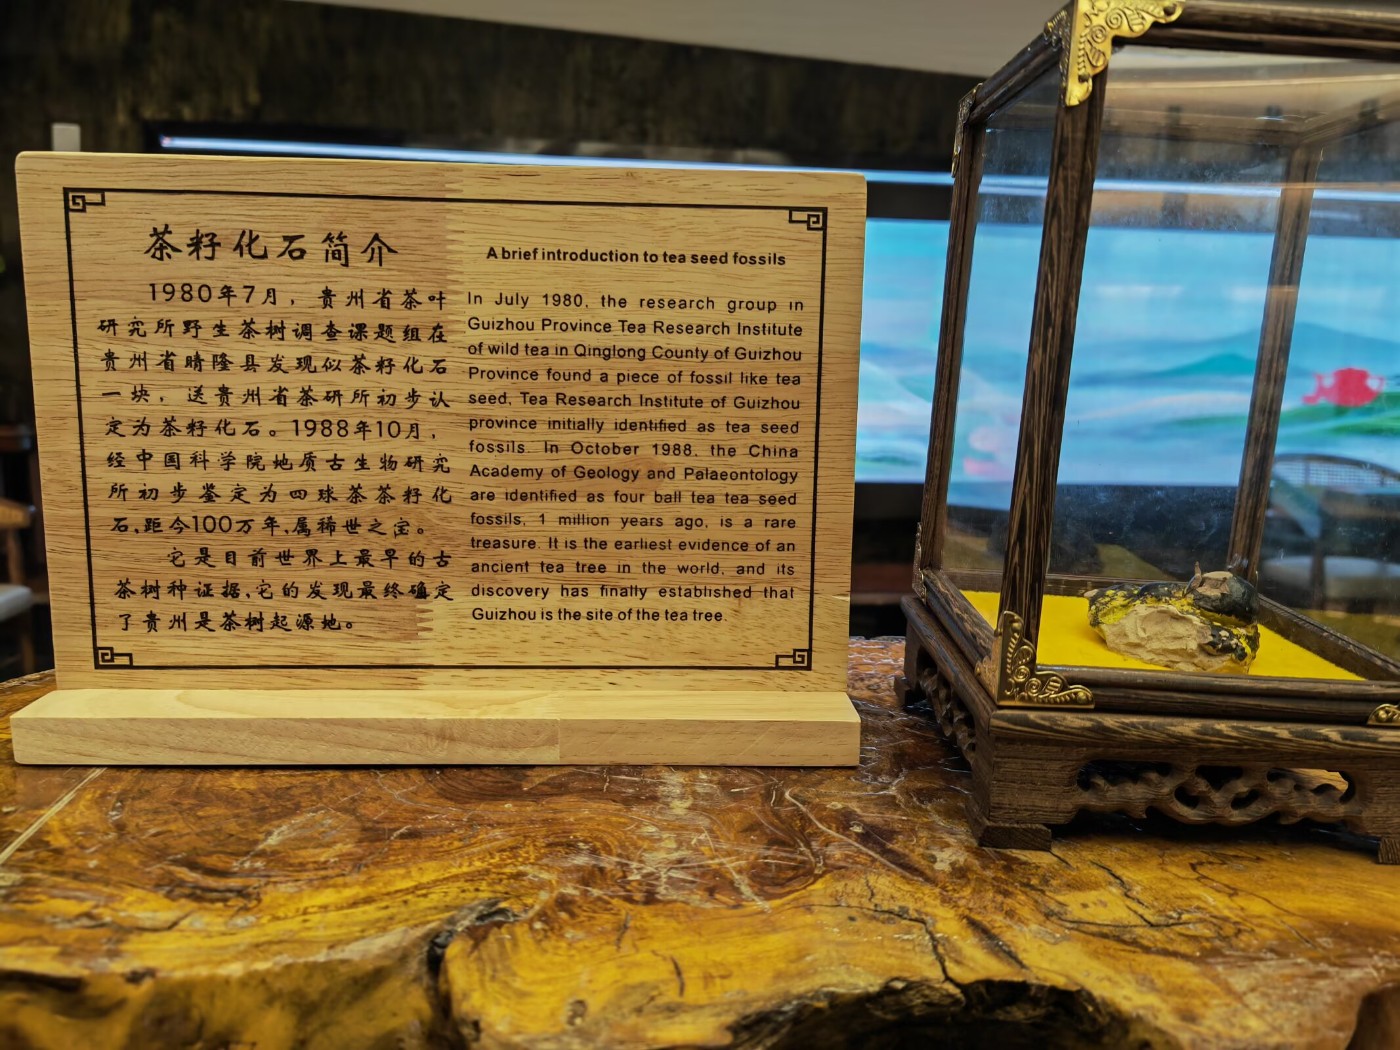 茶籽化石简介
1980年7月，贵州省茶叶
研究所野生茶树调查课题组在
贵州省晴隆县发现似茶籽化石
一块，送贵州省茶研所初步认
定为茶籽化石。1988年10月，
经中国科学院地质古生物研究
所初步鉴定为四球茶茶籽化
石,距今100万年,属稀世之宝。
它是目前世界上最早的古
茶树种证据,它的发现最终确定
了贵州是茶树起源地。
A brief introduction to tea seed fossils
In July 1980, the research group in
Guizhou Province Tea Research Institute
of wild tea in Qinglong County of Guizhou
Province found a piece of fossil like tea
seed, Tea Research Institute of Guizhou
province initially identified as tea seed
fossils. In October 1988, the China
Academy of Geology and Palaeontology
are identified as four ball tea tea seed
fossils, 1 million years ago, is a rare
treasure. It is the earliest evidence of an
ancient tea tree in the world, and its
discovery has finally established that
Guizhou is the site of the tea tree.